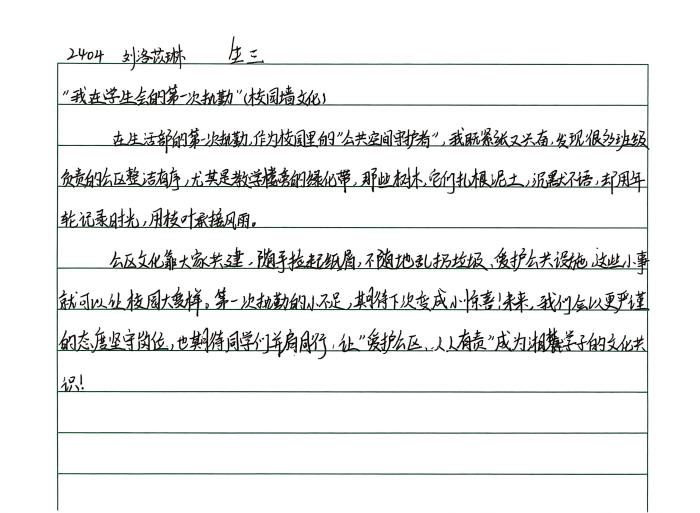 2404 刘洛莎琳 生三
“我在学生会的第一次执勤”(校园墙文化)
在生活部的第一次执勤，作为校园里的“公共空间守护者”，我既紧张又兴奋，发现很多班级
负责的公区整洁有序，尤其是教学楼旁的绿化带，那些树木，它们扎根泥土，沉默不语，却用年
轮记录时光，用枝叶承接风雨。
公区文化靠大家共建，随手捡起纸屑，不随地乱扔垃圾、爱护公共设施，这些小事
就可以让校园大变样。第一次执勤的小不足，期待下次变成小惊喜！未来，我们会以更严谨
的态度坚守岗位，也期待同学们并肩同行，让“爱护公区、人人有责”成为湘麓学子的文化共
识！